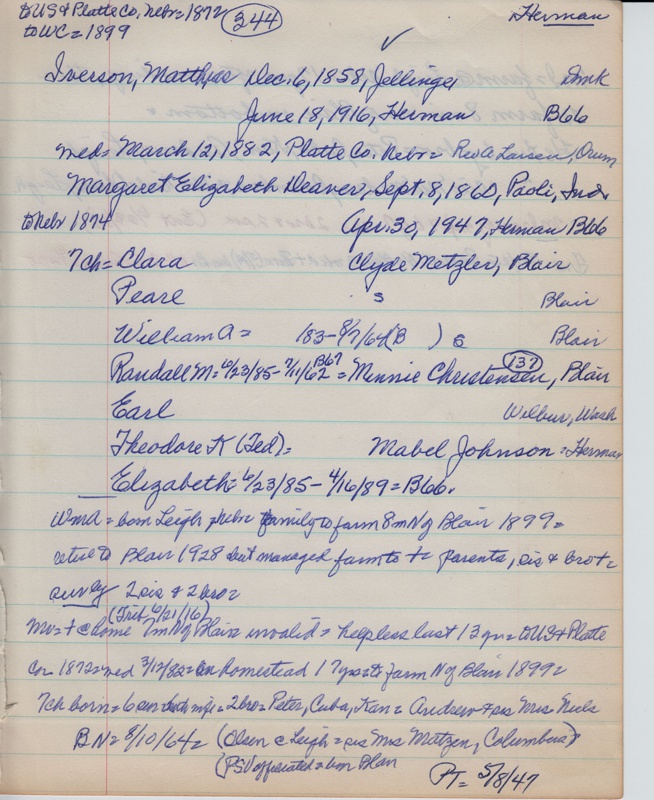 to US & Platte Co, Nebr = 1872 (344) Herman
to WC = 1899
Iverson, Matthias Dec. 6, 1858, Jellinge, Dmk
June 18, 1916, Herman B66
med = March 12, 1882, Platte Co. Nebr = Rev A Larsen, Orum
Margaret Elizabeth Deaver, Sept. 8, 1860, Paoli, Ind.
to Nebr 1874 Apr. 30, 1947, Herman Bl66
7ch = Clara Clyde Metzler, Blair
Pearl s Blair
William A = 183-8/7/64 (B ) s Blair
Randall M = 6/23/85 - 7/11/62 B67 = Minnie Christensen, (137) Blair
Earl Wilbur, Wash
Theodore K (Ted) = Mabel Johnson = Herman
Elizabeth = 6/23/85 - 4/16/89 = B66.
Wm A = born Leigh Nebr family to farm 8 m N of Blair 1899 =
retired to Blair 1928 but managed farm to + parents, sis & bro +
surv by 2 sis & 2 bro =
(Trib 6/21/16)
Mv = + @ home 7m N of Blair invalid = helpless last 13 yr = to US & Platte
Co. 1872 = med 3/12/82 = on homestead 17 yrs to farm N of Blair 1899 =
7ch born = 6 surv = 2 bro = Peter, Cuba, Kan = Andrew & sis Mrs Niels
BN = 8/10/64 = (Olsen @ Leigh = sis Mrs Matzen, Columbus)
(PSV officiated = bur Blair PT = 5/8/47